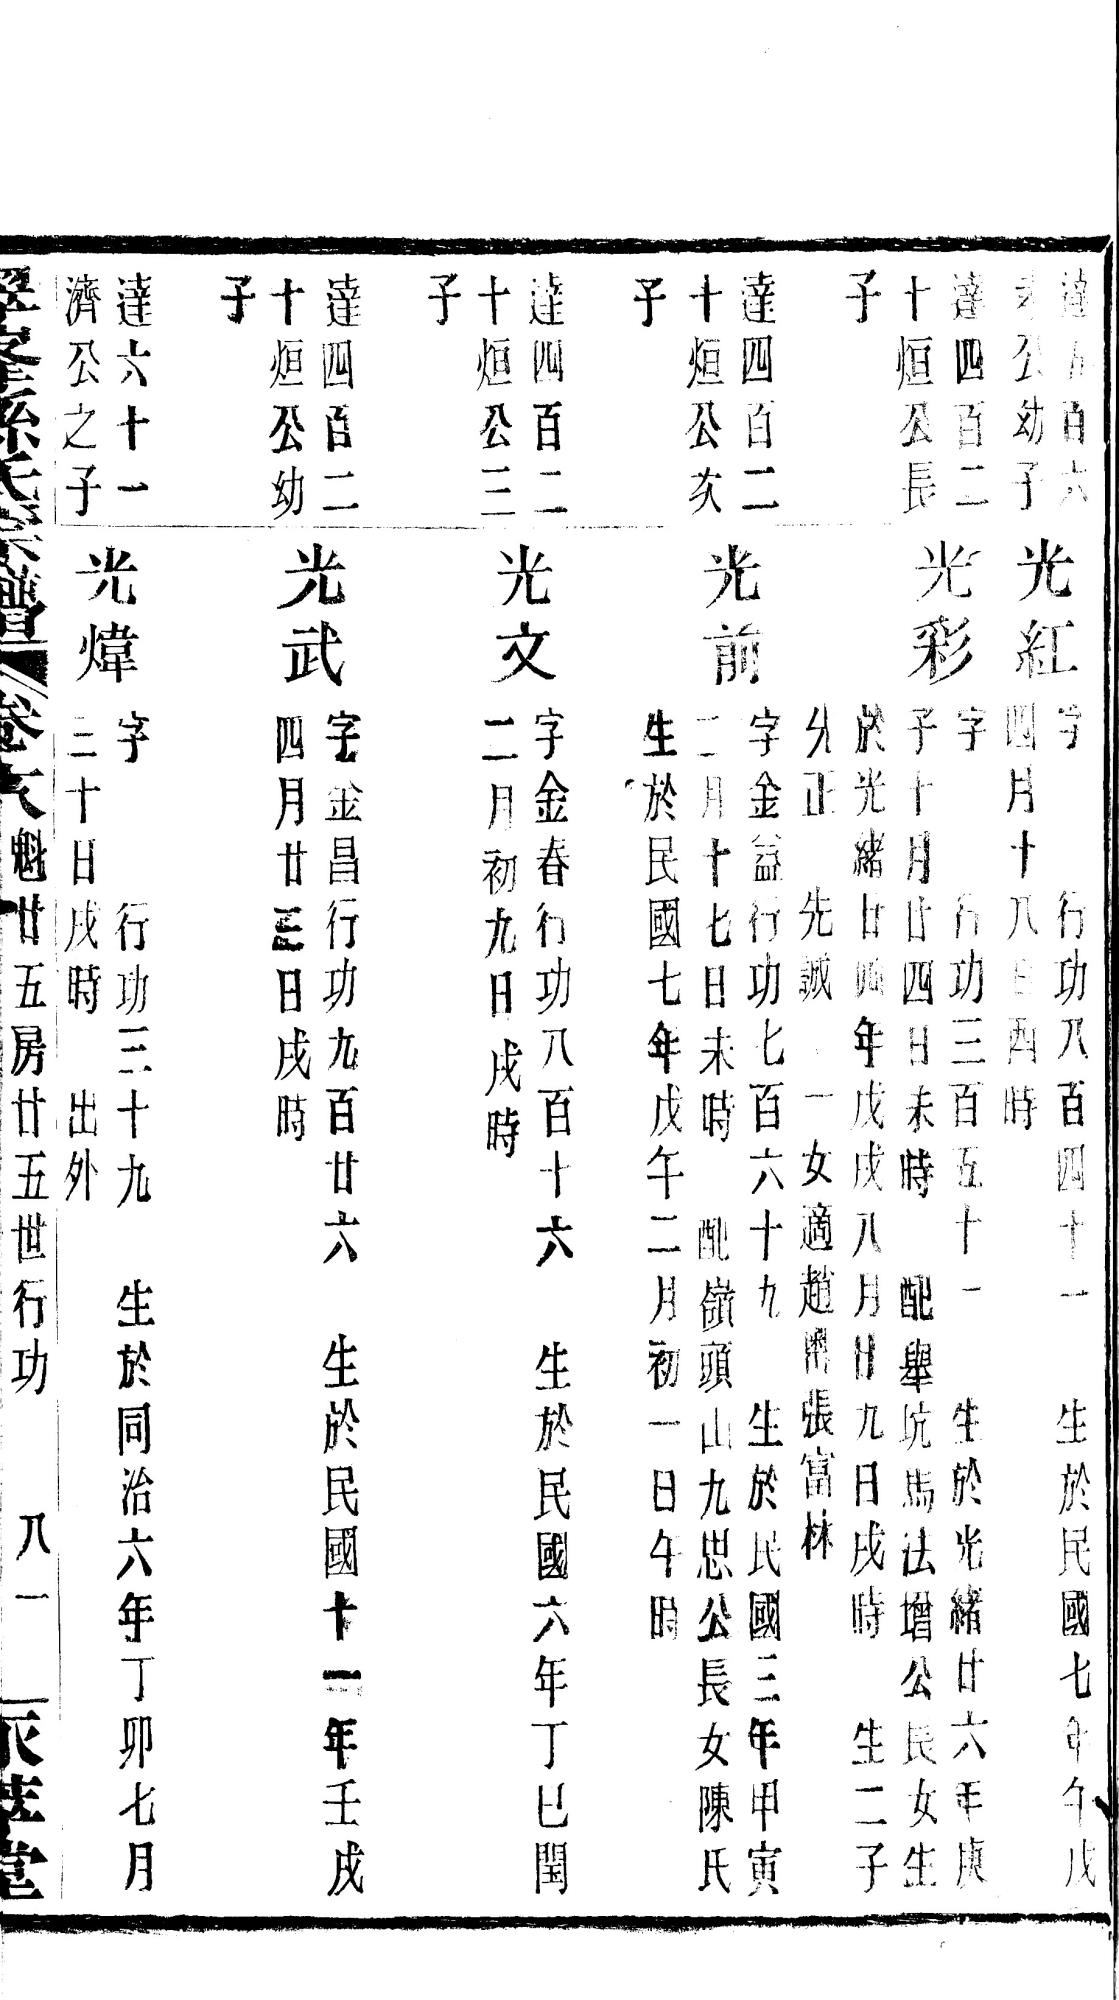 達五百六
公幼子
光紅
字 行功八百四十一 生於民國七年午戊
四月十八日酉時
達四百二
十烜公長
子
光彩
字 行功三百五十一 生於光緒廿六年庚
子十月廿四日未時 配舉坑馬法增公民女生
於光緒廿四年戊戌八月廿九日戌時 生二子
允正 先誠 一女適趙嶴張富林
達四百二
十烜公次
子
光前
字金益行功七百六十九 生於民國三年甲寅
二月十七日未時 配嶺頭山九思公長女陳氏
生於民國七年戊午二月初一日午時
達四百二
十烜公三
子
光文
字金春行功八百十六 生於民國六年丁巳閏
二月初九日戌時
達四百二
十烜公幼
子
光武
字金昌行功九百廿六 生於民國十一年壬戌
四月廿三日戌時
達六十一
濟公之子
光煒
字 行功三十九 生於同治六年丁卯七月
三十日戌時 出外
翠峯孫氏宗譜 卷六 魁廿五房廿五世行功 八一 堂